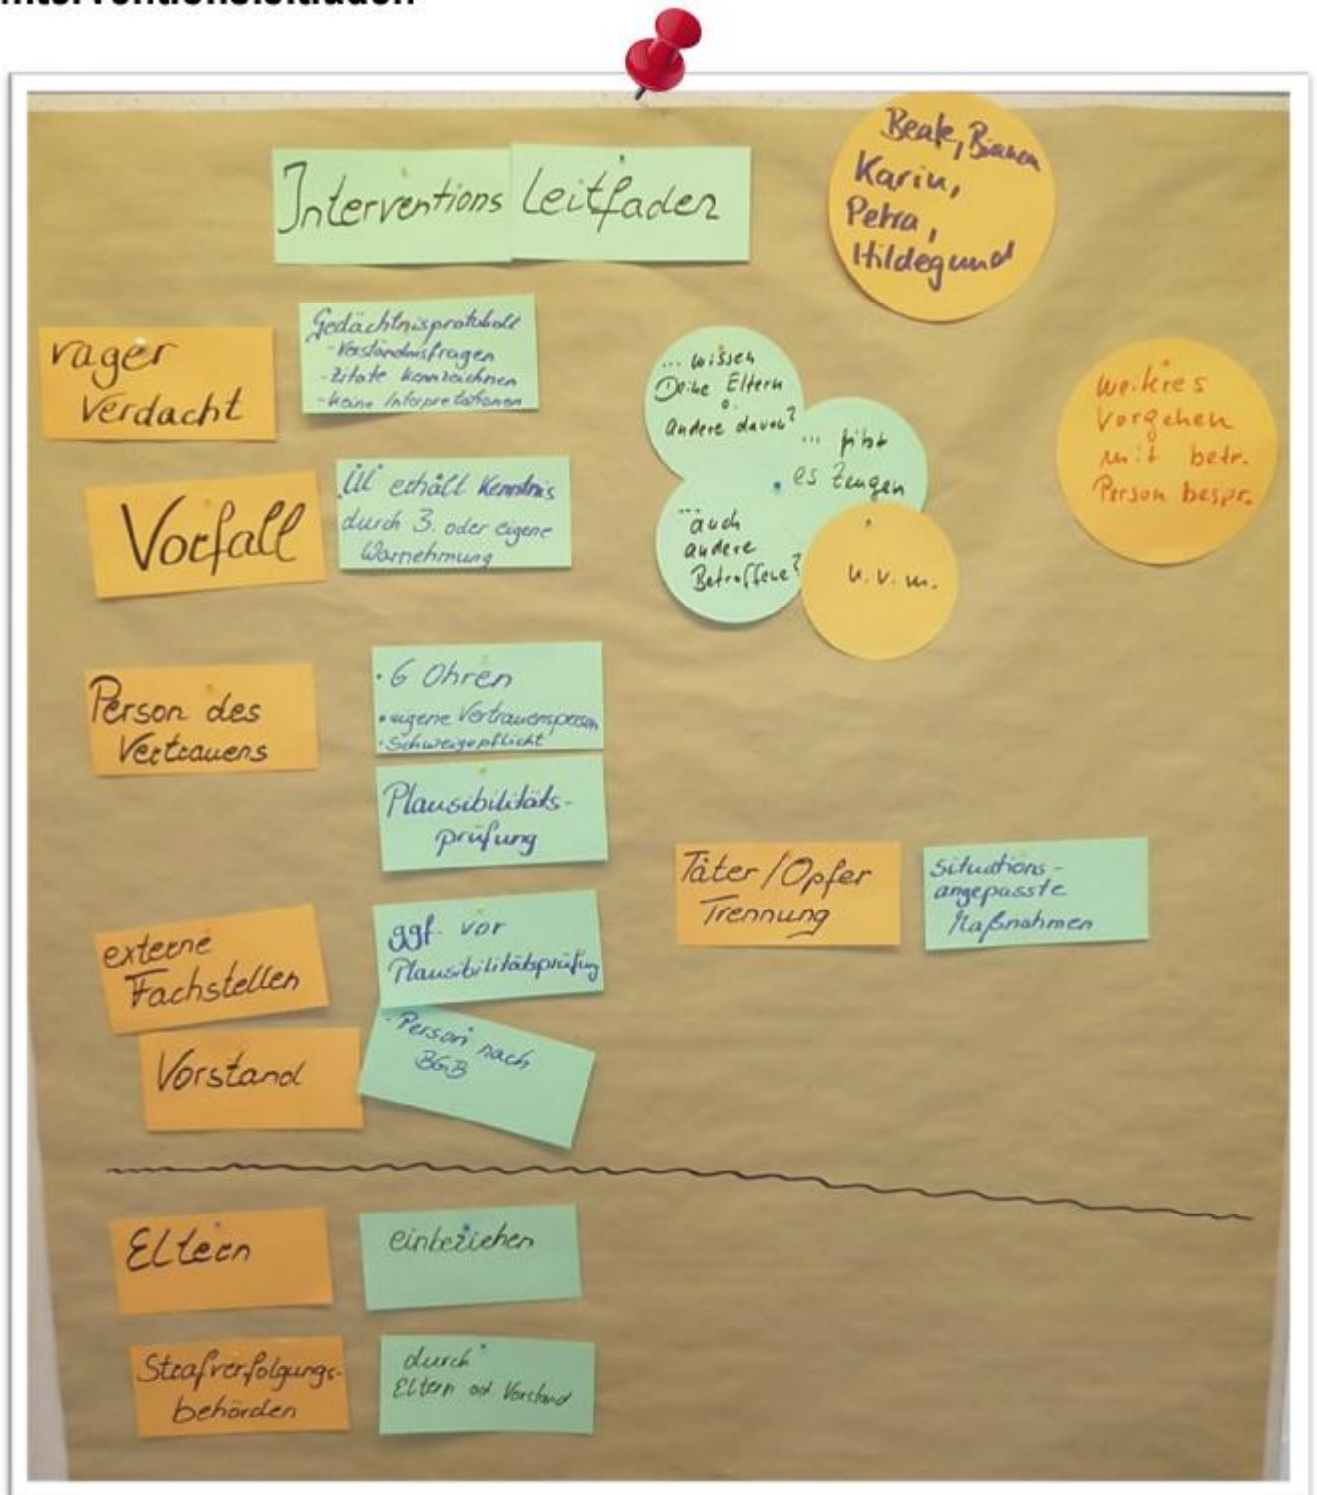 Interventionsleitfaden
Interventions Leitfaden
Beate, Bianca
Karin,
Petra,
Hildegund
vager
Verdacht
Gedächtnisprotokoll
- Verständnisfragen
- Zitate kennzeichnen
- keine Interpretationen
... wissen
Deine Eltern
o.
andere davon?
... gibt
es Zeugen
... auch
andere
Betroffene?
u. v. m.
weiteres
Vorgehen
mit betr.
Person bespr.
Vorfall
ÜL erhält Kenntnis
durch 3. oder eigene
Warnehmung
Person des
Vertrauens
• 6 Ohren
• eigene Vertrauensperson
• Schweigepflicht
Plausibilitäts-
prüfung
Täter/Opfer
Trennung
Situations-
angepasste
Maßnahmen
externe
Fachstellen
ggf. vor
Plausibilitätsprüfung
Vorstand
· Person nach
BGB
Eltern
einbeziehen
Strafverfolgungs-
behörden
durch
Eltern od. Vorstand